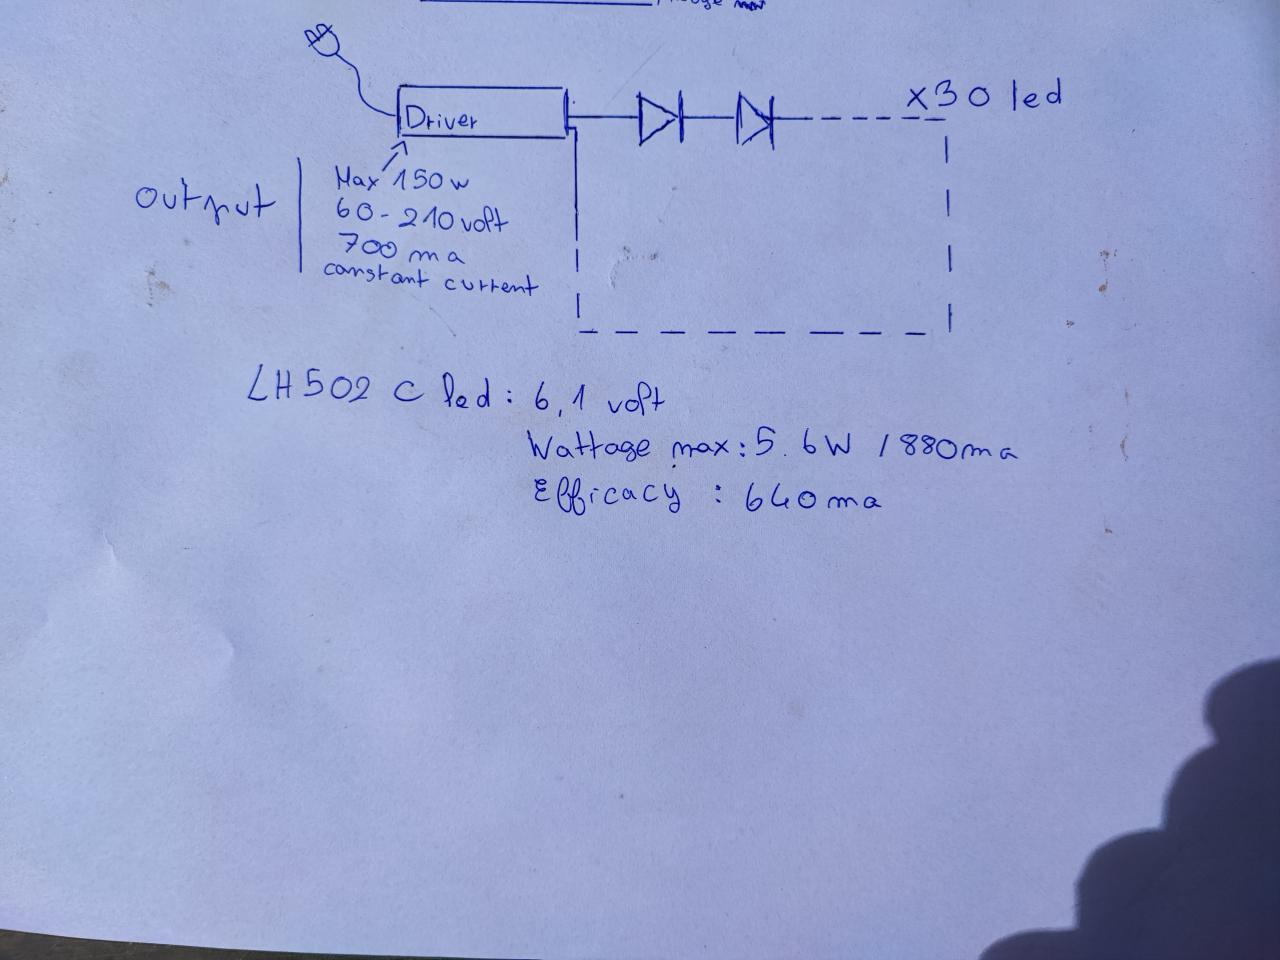 Driver
x30 led
output
Max 150w
60-210 volt
700 ma
constant current
LH502 C led: 6,1 volt
Wattage max: 5.6W / 880ma
Efficacy : 640ma